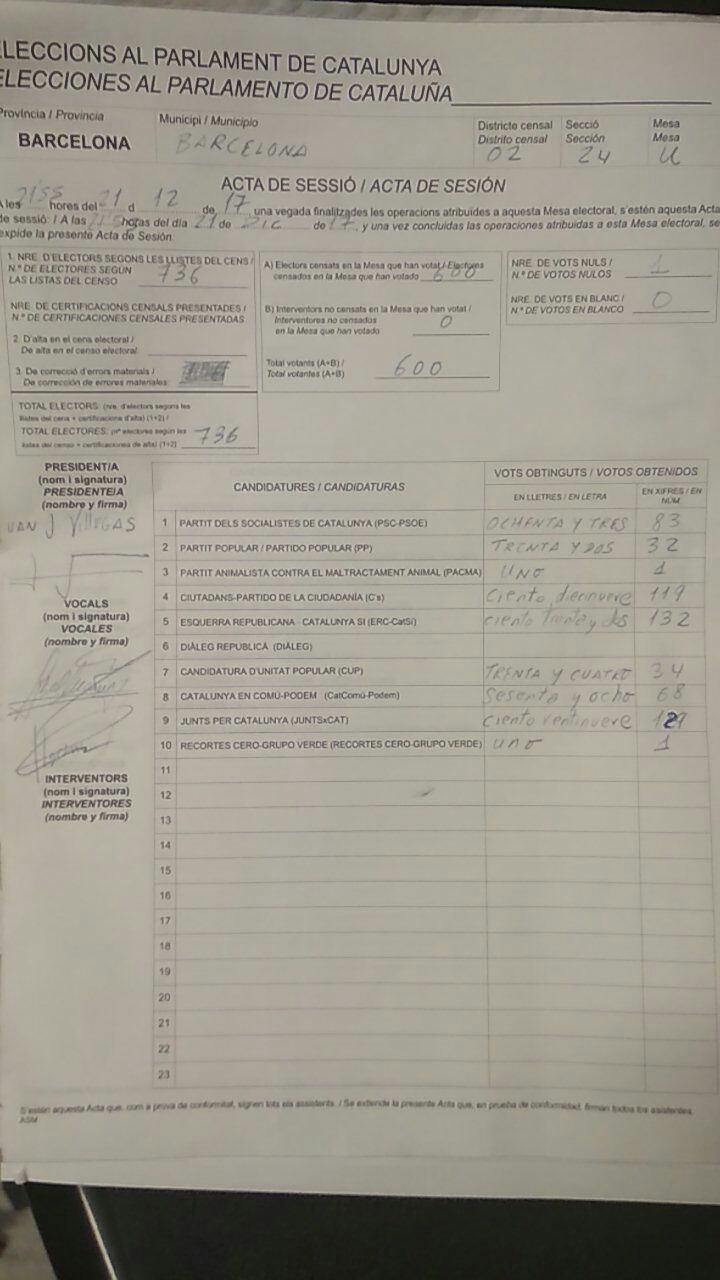 ELECCIONS AL PARLAMENT DE CATALUNYA
ELECCIONES AL PARLAMENTO DE CATALUÑA
Província / Provincia
BARCELONA
Municipi / Municipio
BARCELONA
Districte censal
Distrito censal
02
Secció
Sección
24
Mesa
Mesa
U
ACTA DE SESSIÓ / ACTA DE SESIÓN
A les 2155 hores del 21 d 12 de 17, una vegada finalitzades les operacions atribuïdes a aquesta Mesa electoral, s'estén aquesta Acta
de sessió: / A las horas del día 21 de DIC de 17, y una vez concluidas las operaciones atribuidas a esta Mesa electoral, se
expide la presente Acta de Sesión
1. NRE. D'ELECTORS SEGONS LES LLISTES DEL CENS /
N.º DE ELECTORES SEGÚN
LAS LISTAS DEL CENSO 736
NRE. DE CERTIFICACIONS CENSALS PRESENTADES /
N.º DE CERTIFICACIONES CENSALES PRESENTADAS
2. D'alta en el cens electoral /
De alta en el censo electoral:
3. De correcció d'errors materials /
De corrección de errores materiales:
TOTAL ELECTORS: (nre. d'electors segons les
llistes del cens + certificacions d'alta) (1+2) /
TOTAL ELECTORES: (nº electores según las
listas del censo + certificaciones de alta) (1+2) 736
A) Electors censats en la Mesa que han votat / Electores
censados en la Mesa que han votado 600
B) Interventors no censats en la Mesa que han votat /
Interventores no censados
en la Mesa que han votado 0
Total votants (A+B) /
Total votantes (A+B) 600
NRE. DE VOTS NULS /
N.º DE VOTOS NULOS 1
NRE. DE VOTS EN BLANC /
N.º DE VOTOS EN BLANCO 0
PRESIDENT/A
(nom i signatura)
PRESIDENTE/A
(nombre y firma)
UAN J VILLEGAS
VOCALS
(nom i signatura)
VOCALES
(nombre y firma)
INTERVENTORS
(nom i signatura)
INTERVENTORES
(nombre y firma)
CANDIDATURES / CANDIDATURAS
VOTS OBTINGUTS / VOTOS OBTENIDOS
EN LLETRES / EN LETRA
EN XIFRES / EN NÚM.
1 PARTIT DELS SOCIALISTES DE CATALUNYA (PSC-PSOE) OCHENTA Y TRES 83
2 PARTIT POPULAR / PARTIDO POPULAR (PP) TRENTA Y DOS 32
3 PARTIT ANIMALISTA CONTRA EL MALTRACTAMENT ANIMAL (PACMA) UNO 1
4 CIUTADANS-PARTIDO DE LA CIUDADANÍA (C's) Ciento diecinueve 119
5 ESQUERRA REPUBLICANA - CATALUNYA SÍ (ERC-CatSí) ciento trenta y dos 132
6 DIÀLEG REPUBLICÀ (DIÀLEG)
7 CANDIDATURA D'UNITAT POPULAR (CUP) TRENTA Y CUATRO 34
8 CATALUNYA EN COMÚ-PODEM (CatComú-Podem) Sesenta y ocho 68
9 JUNTS PER CATALUNYA (JUNTSxCAT) Ciento ventinueve 129
10 RECORTES CERO-GRUPO VERDE (RECORTES CERO-GRUPO VERDE) uno 1
11
12
13
14
15
16
17
18
19
20
21
22
23
S'estén aquesta Acta que, com a prova de conformitat, signen tots els assistents. / Se extiende la presente Acta que, en prueba de conformidad, firman todos los asistentes.
ASM